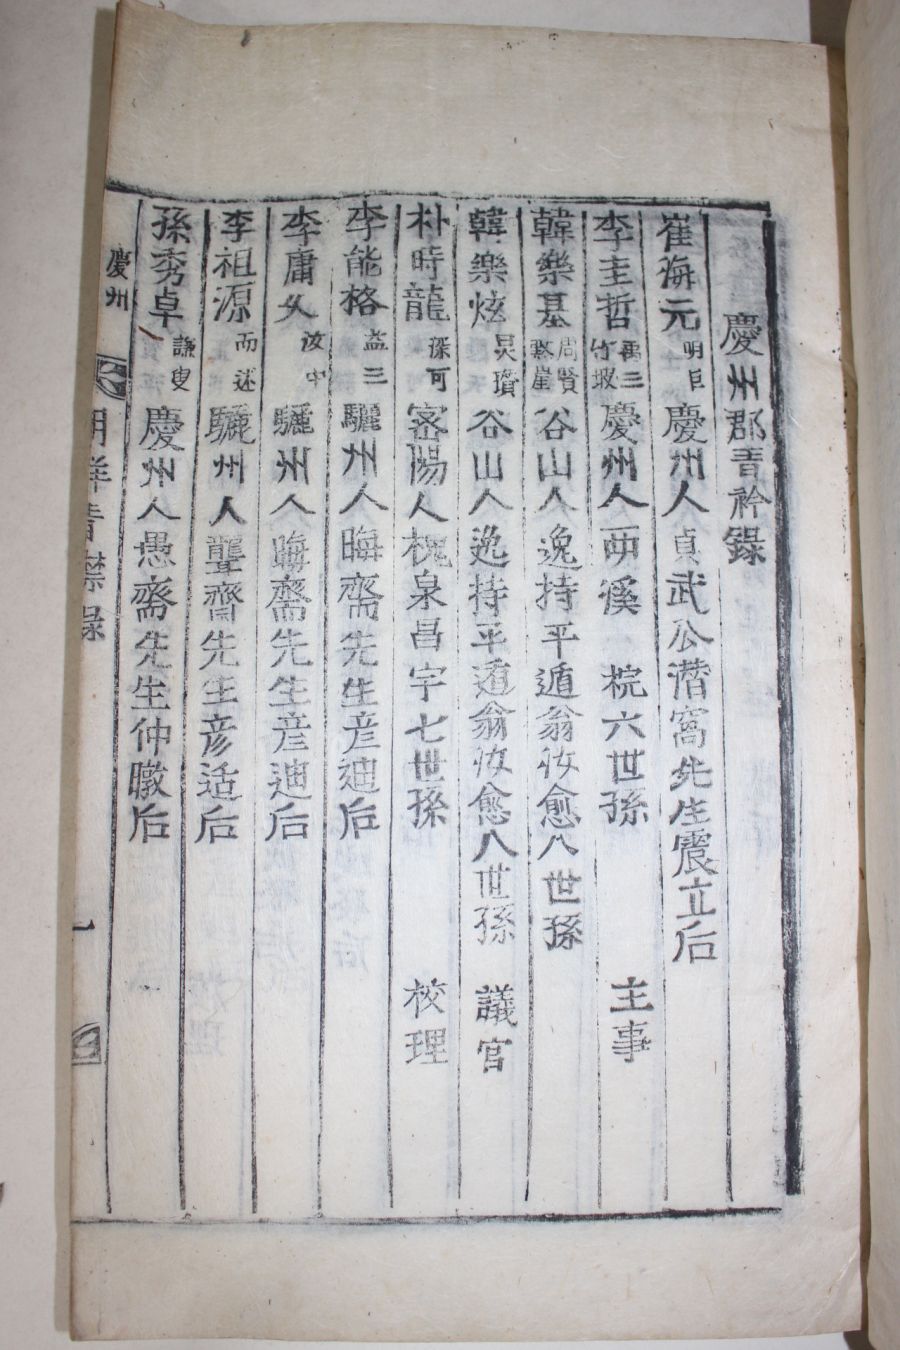 慶州郡青衿錄
崔海元 明臣 慶州人 貞武公潛窩先生震立后
李圭哲 禹三 竹坡 慶州人 西溪 梡六世孫 主事
韓樂基 周賢 谷山人 逸持平遁翁汝愈八世孫
韓樂炫 見瓚 谷山人 逸持平遁翁汝愈八世孫 議官
朴時龍 深可 密陽人 槐泉昌宇七世孫 校理
李能格 益三 驪州人 晦齋先生彦迪后
李庸久 汝中 驪州人 晦齋先生彦迪后
李祖源 而述 驪州人 聾齋先生彦适后
孫秀卓 謙叟 慶州人 愚齋先生仲暾后
慶州
青襟錄
一